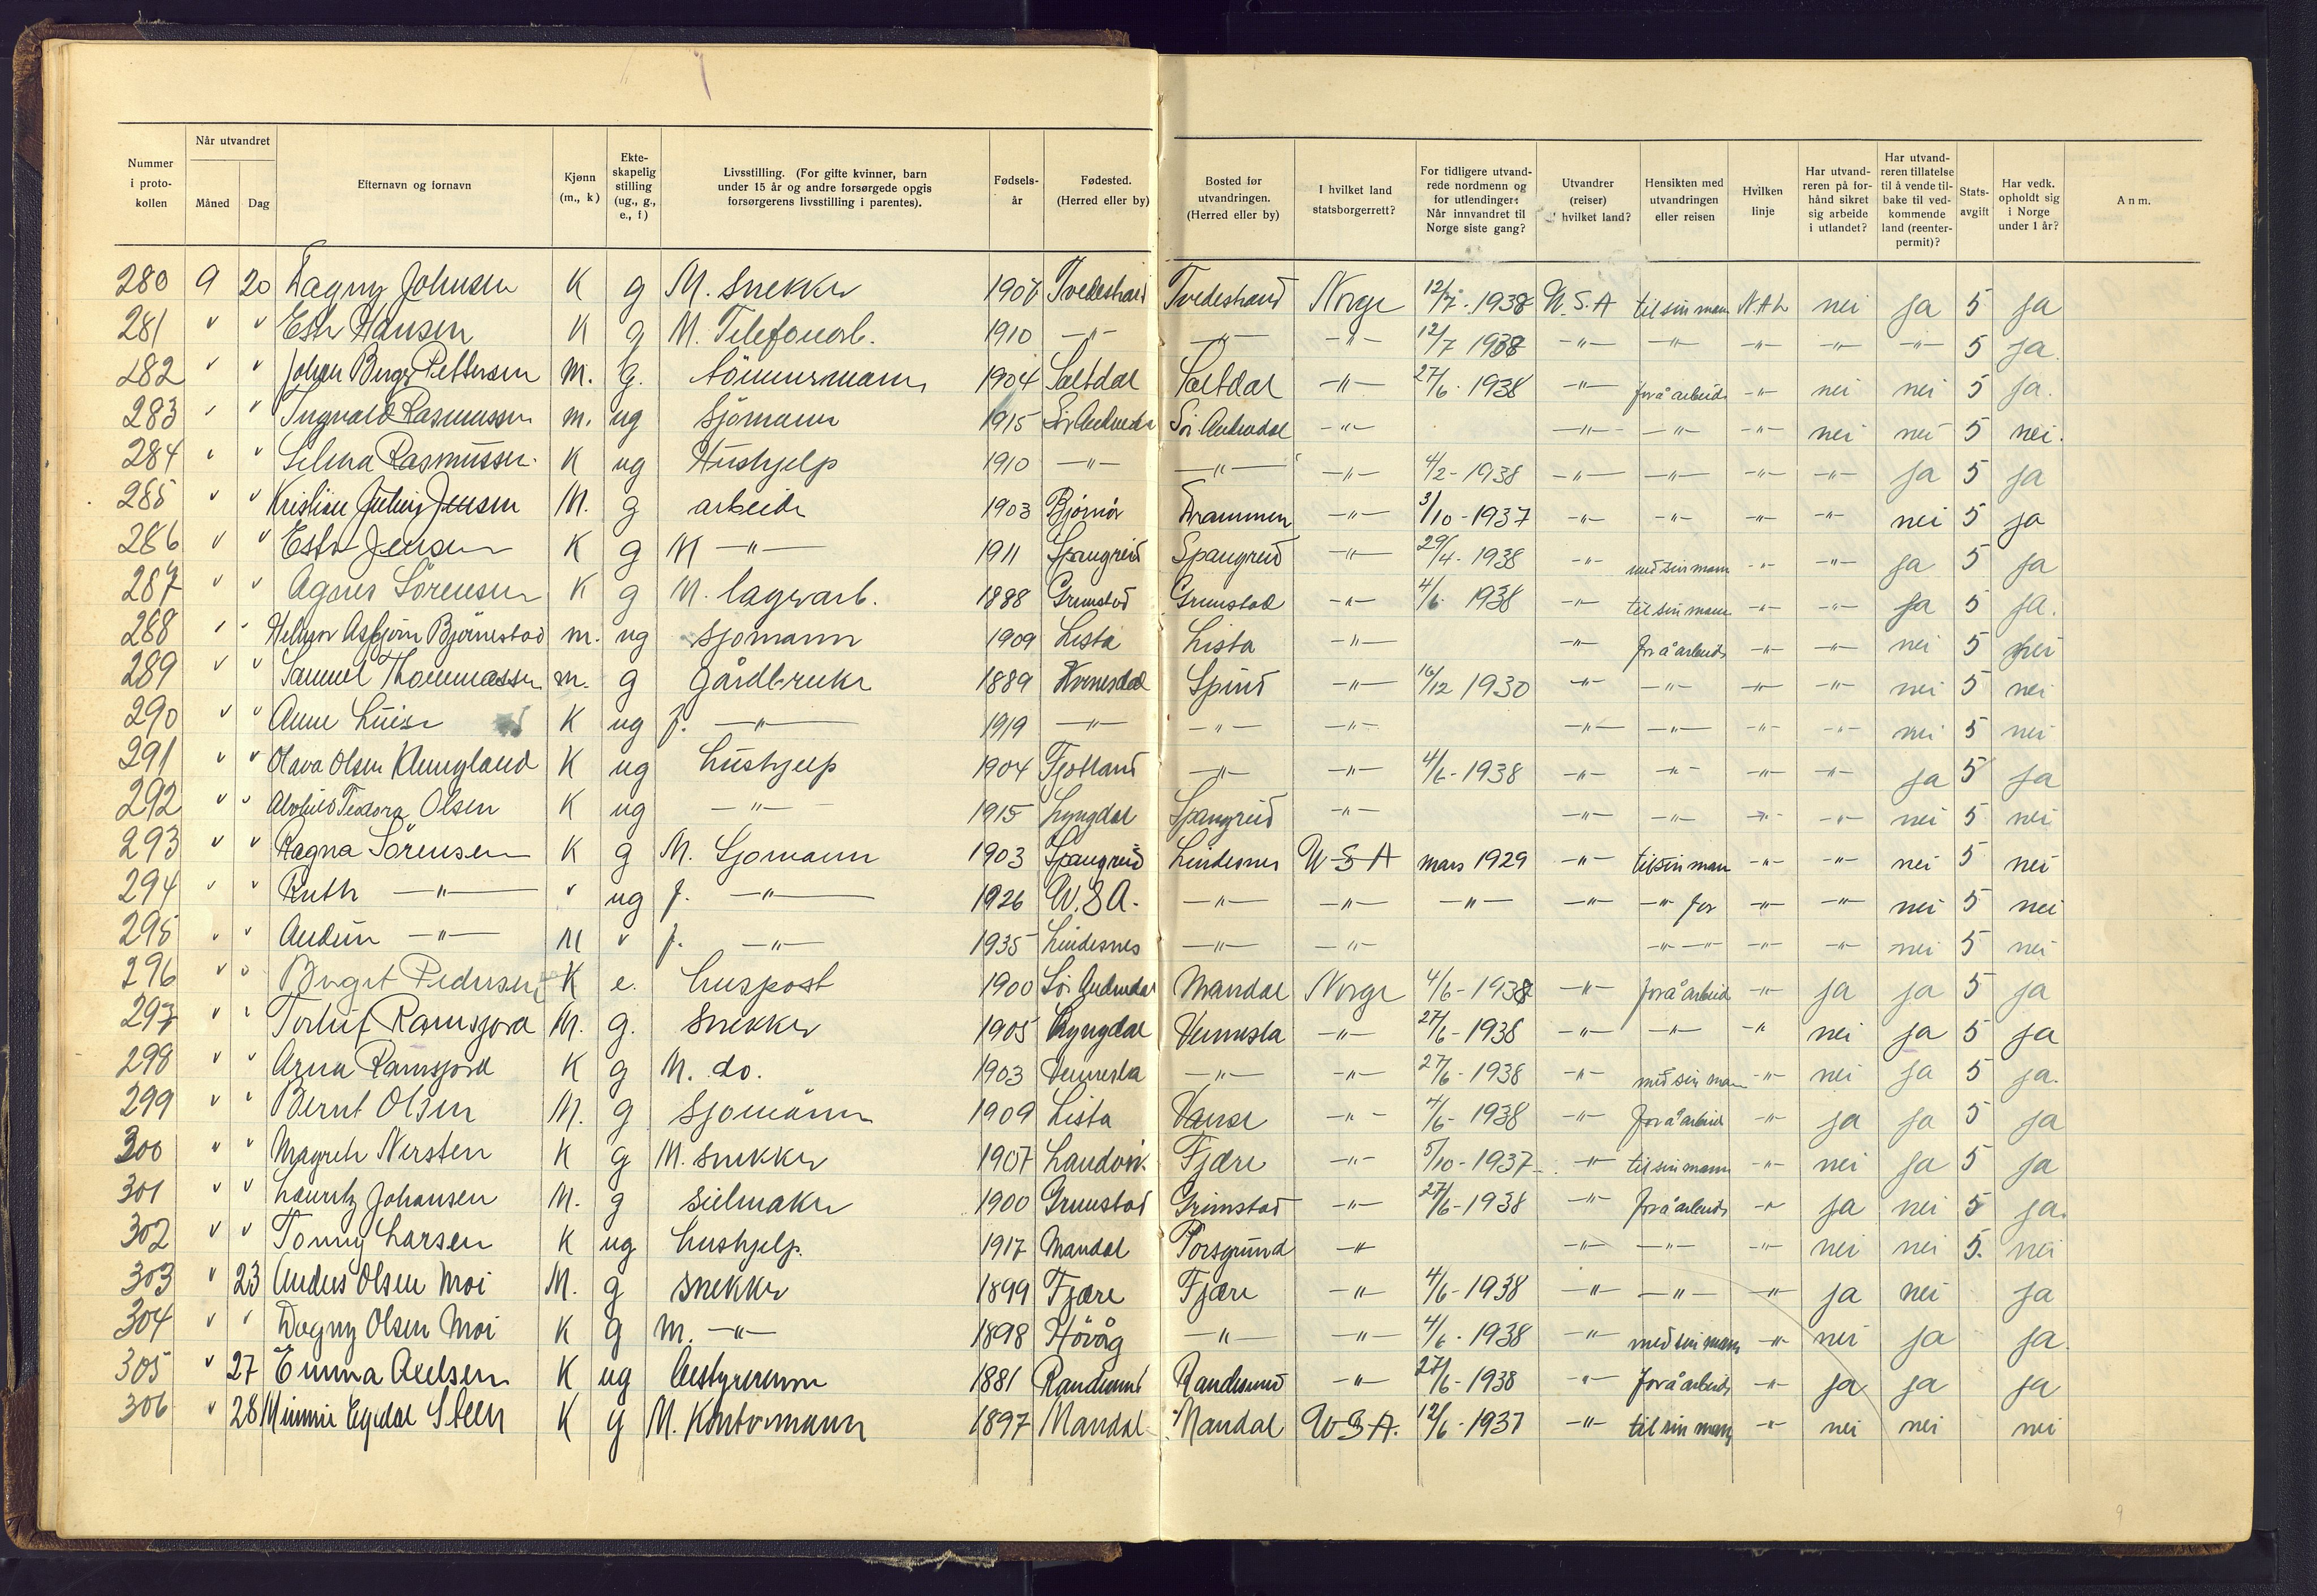 Nummer i proto- kollen | Når utvandret Måned | Dag | Efternavn og fornavn | Kjønn (m., k) | Ekte- skapelig stilling (ug., g., e., f) | Livsstilling. (For gifte kvinner, barn under 15 år og andre forsørgede opgis forsørgerens livsstilling i parentes). | Fødsels- år | Fødested. (Herred eller by) | Bosted før utvandringen. (Herred eller by) | I hvilket land statsborgerrett? | For tidligere utvand- rede nordmenn og for utlendinger: Når innvandret til Norge siste gang? | Utvandrer (reiser) hvilket land? | Hensikten med utvandringen eller reisen | Hvilken linje | Har utvand- reren på for- hånd sikret sig arbeide i utlandet? | Har utvand- reren tillatelse til å vende til- bake til ved- kommende land (reenter- permit)? | Stats- avgift | Har vedk. opholdt sig i Norge under 1 år? | Anm.
280 9 20 Dagny Johnsen K g M. Snekker 1908 Tvedestrand Tvedestrand Norge 12/7-1938 U.S.A til sin mann N.A.L nei ja 5 ja
281 " " Esther Hansen K g M. Telefonarb. 1910 -"- -"- -"- 12/7 1938 -"- -"- -"- -"- -"- 5 ja.
282 " " Johan Birger Pettersen m. g. tömmermann 1904 Saltdal Saltdal -"- 27/6-1938 -"- for å arbeide -"- nei nei 5 ja.
283 " " Ingvald Rasmussen m. ug sjömann 1915 Sör Audnedal Sör Audnedal -"- -"- -"- -"- nei nei 5 nei.
284 " " Selma Rasmussen K ug Hushjelp 1910 -"- -"- -"- 4/2-1938 -"- -"- -"- -"- ja 5 ja
285 " " Kristian Julius Jensen M. g arbeider 1903 Bjørnör Drammen -"- 3/10-1937 -"- -"- -"- -"- nei 5 ja
286 " " Ester Jensen K g M -"- 1911 Spangreid Spangreid -"- 29/4-1938 -"- med sin mann -"- -"- ja 5 ja
287 " " Agnes Sörensen K g M. lagerarb. 1888 Grimstad Grimstad -"- 4/6 1938 -"- til sin mann -"- -"- ja 5 ja.
288 " " Helmer Asbjörn Björnestad m. ug sjomann 1909 Lista Lista -"- -"- for å arbeide -"- -"- nei 5 nei
289 " " Samuel Thommassen m. g gårdbruker 1889 Kvinesdal Spind -"- 16/12 1930 -"- -"- -"- -"- nei 5 nei
290 " " Anne Luise K ug f. -"- 1919 -"- -"- -"- -"- -"- -"- -"- nei 5 nei
291 " " Olava Olsen Klungland K ug hushjelp 1904 Fjotland -"- -"- 4/6-1938 -"- -"- -"- -"- ja 5 ja
292 " " Teodora Olsen K ug -"- 1915 Lyngdal Spangreid -"- -"- -"- -"- -"- nei 5 nei
293 " " Ragna Sörensen K g M. Sjomann 1903 Spangreid Lindesnes U S A mars 1929 -"- til sin mann -"- -"- nei 5 nei
294 " " Ruth -"- " ug f. -"- 1926 U.S.A. -"- -"- -"- -"- -"- far -"- -"- nei 5 nei
295 " " Audun -"- M " f. -"- 1935 Lindesnes -"- -"- -"- -"- -"- -"- nei 5 nei
296 " " Birgit Pedersen K e. huspost 1900 Sör Audnedal Mandal Norge 4/6-1938 -"- for å arbeide -"- ja ja 5 ja
297 " " Torleif Ramsjord M. g. Snekker 1905 Lyngdal Vennesla -"- 27/6-1938 -"- -"- -"- nei ja 5 ja
298 " " Arna Ramsjord K g M. do. 1903 Vennesla -"- -"- 27/6-1938 -"- med sin mann -"- nei ja 5 ja.
299 " " Bernt Olsen M. g sjomann 1909 Lista Vanse -"- 4/6-1938 -"- for å arbeide -"- ja ja 5 ja
300 " " Magreth Nersten K g M. snekker 1907 Landvik Fjære -"- 5/10-1937 -"- til sin mann -"- nei ja 5 ja
301 " " Lauritz Johansen M. g seilmaker 1900 Grimstad Grimstad -"- 27/6-1938 -"- for å arbeide -"- ja nei 5 ja.
302 " " Tonny Larsen K ug hushjelp. 1917 Mandal Porsgrund -"- -"- -"- -"- nei nei 5. nei
303 " 23 Anders Olsen Moi M. g snekker 1899 Fjære Fjære -"- 4/6-1938 -"- -"- -"- ja nei ja
304 " " Dagny Olsen Moi K g M. -"- 1898 Hövåg -"- -"- 4/6-1938 -"- med sin mann -"- nei ja ja.
305 " 27 Emma Axelsen K ug bestyrerinne 1881 Randesund Randesund -"- 27/6-1938 -"- for å arbeide -"- ja ja ja
306 " 28 Minnie Egedal Steen K g M. Kontormann 1897 Mandal Mandal U S A. 12/6-1937 -"- til sin mann -"- nei nei nei
9